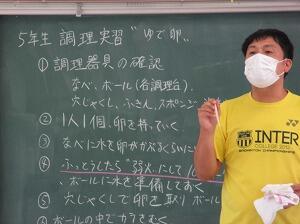 5年生 調理実習 "ゆで卵"
① 調理器具の確認
なべ、ボール(各調理台)
穴じゃくし、ふきん、スポンジ
② 1人1個、卵を持っていく
③ なべに水を卵がかぶるくらいに
④ ふっとうしたら"弱火にして
、ボールに水を準備しておく
⑤ 穴じゃくしで卵を取り ボール
ボールの中でカラをむく
YONEX
INTER
COLLEGE 2012